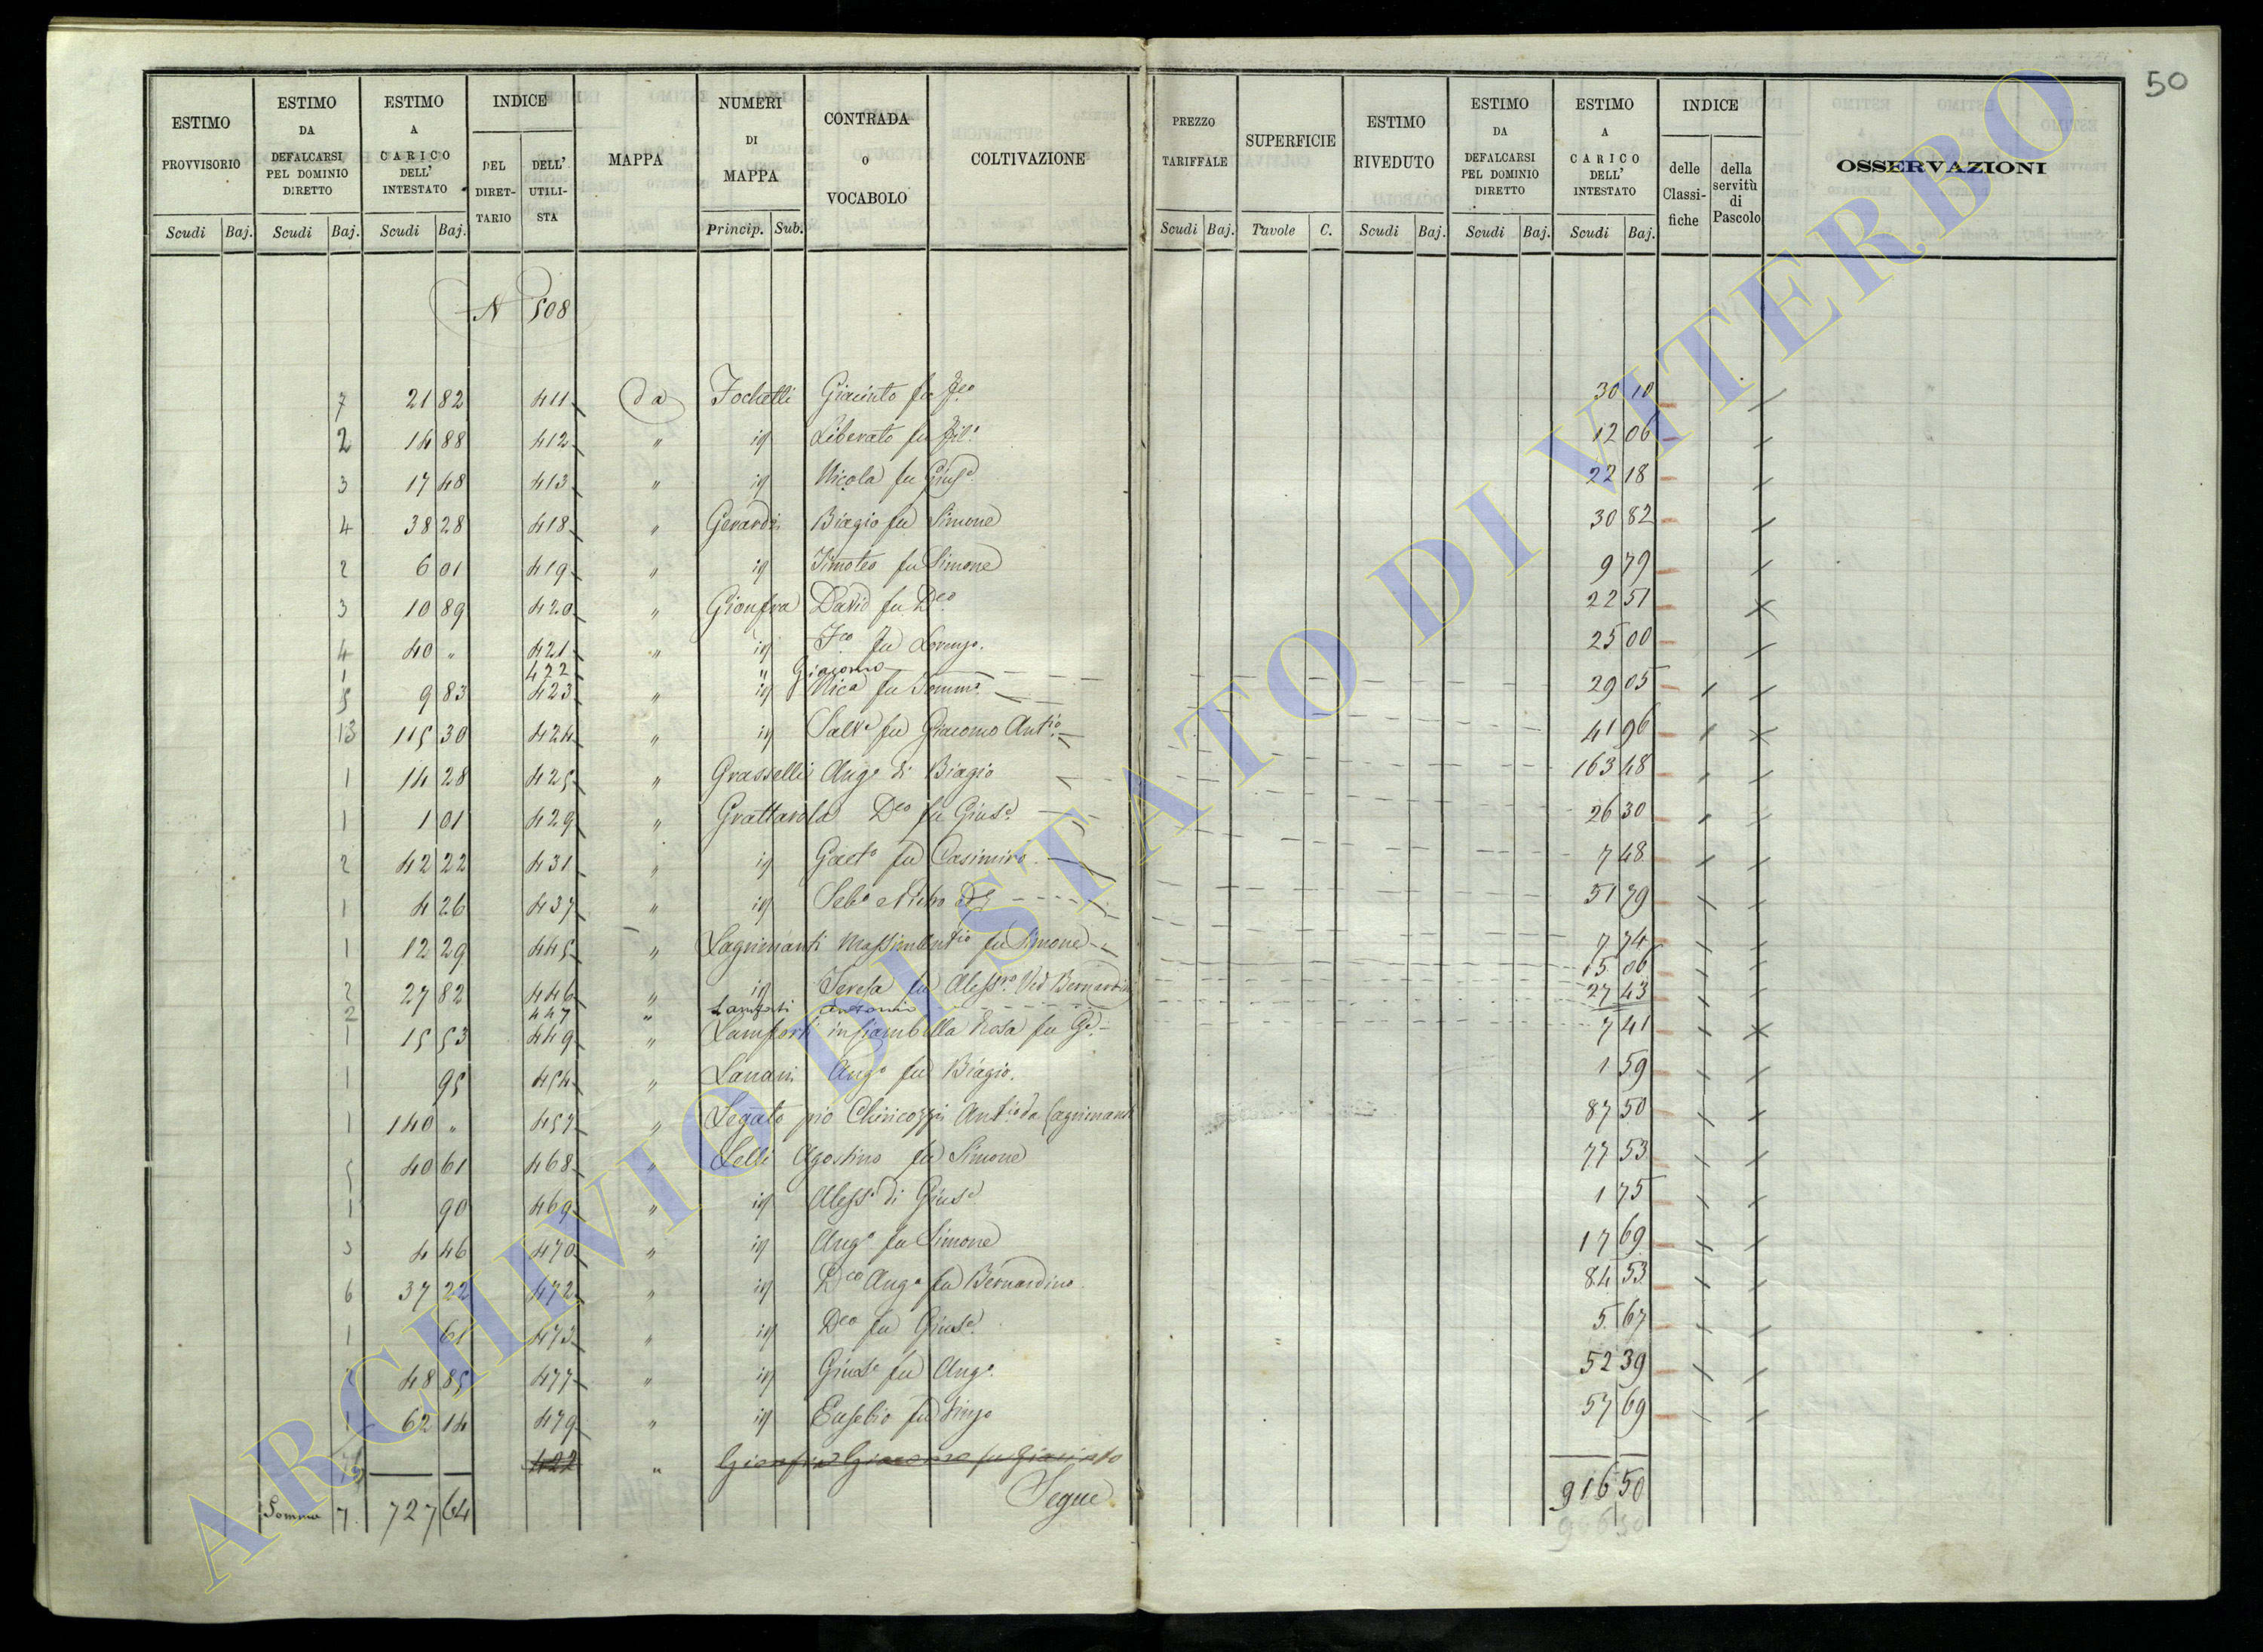 50
ESTIMO PROVVISORIO Scudi Baj.
ESTIMO DA DEFALCARSI PEL DOMINIO DIRETTO Scudi Baj.
ESTIMO A CARICO DELL' INTESTATO Scudi Baj.
INDICE DEL DIRET- TARIO DELL' UTILI- STA
MAPPA
NUMERI DI MAPPA Princip. Sub.
CONTRADA O VOCABOLO
COLTIVAZIONE
PREZZO TARIFFALE Scudi Baj.
SUPERFICIE Tavole C.
ESTIMO RIVEDUTO Scudi Baj.
ESTIMO DA DEFALCARSI PEL DOMINIO DIRETTO Scudi Baj.
ESTIMO A CARICO DELL' INTESTATO Scudi Baj.
INDICE delle Classi- fiche della servitù di Pascolo
OSSERVAZIONI
N 508
7 21 82 411 da Fochetti Giacinto fu 30 10
2 14 88 412 " id Liberato fu Fil.e 12 06
3 17 48 413 " id Nicola fu Gius.e 22 18
4 38 28 418 " Gerardi Biagio fu Simone 30 82
2 6 01 419 " id Timoteo fu Simone 9 79
3 10 89 420 " Gionfra David fu D.co 22 51
4 40 " 421 " id F.co fu Lorenzo. 25 00
1 422 " Giacomo
5 9 83 423 " id Nic.a fu Tomm.o 29 05
13 115 30 424 " id Salv.e fu Giacomo Ant.io 41 96
1 14 28 425 " Grasselli Ang.o di Biagio 163 48
1 1 01 429 " Grattarola D.co fu Gius.e 26 30
2 42 22 431 " id Gaet.o fu Casimiro 7 48
1 4 26 437 " id Seb.o 51 79
1 12 29 445 " Lagrimanti Massimo Ant.io fu Simone 7 74
15 06
2 27 82 446 " id Teresa fu Aless.ro Ved Bernardini 27 43
2 447 " Lamforti Antonio
1 15 53 449 " Lamforti in Rosa fu G.e 7 41
1 95 454 " Lanari Ang.o fu Biagio. 1 59
1 140 " 457 " Legato pio Chiricozzi Ant.io da Lagrimanti 87 50
5 40 61 468 " Lelli Agostino fu Simone 77 53
1 90 469 " id Aless.o di Gius.e 1 75
3 4 46 470 " id Ang.o fu Simone 17 69
6 37 22 472 " id D.co Ang.o fu Bernardino 84 53
1 61 473 " id D.co fu Gius.e 5 67
2 48 85 477 " id Gius.e fu Ang.o 52 39
1 62 14 479 " id Eusebio fu 57 69
422 " Gionfra Giacomo fu Giacinto
Segue
Somma 7. 727 64
916 50
906 50
ARCHIVIO DI STATO DI VITERBO